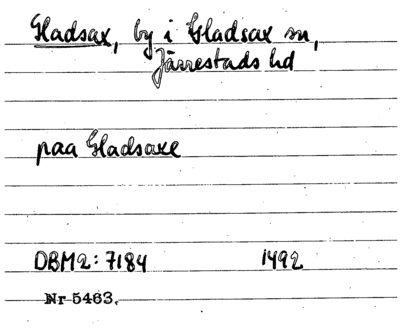 Gladsax, by i Gladsax sn,
Järrestads hd
paa Gladsaxe
DBM2: 7184 1492
Nr 5463.